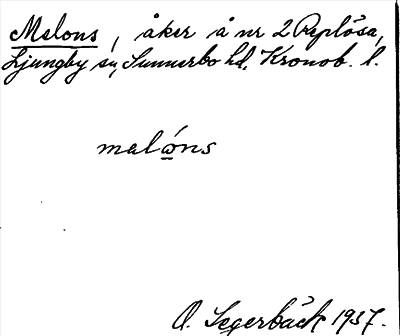 Melons, åker å nr 2 Replösa,
Ljungby sn, Sunnerbo hd. Kronob. l.
melóns
O. Segerbäck 1937.